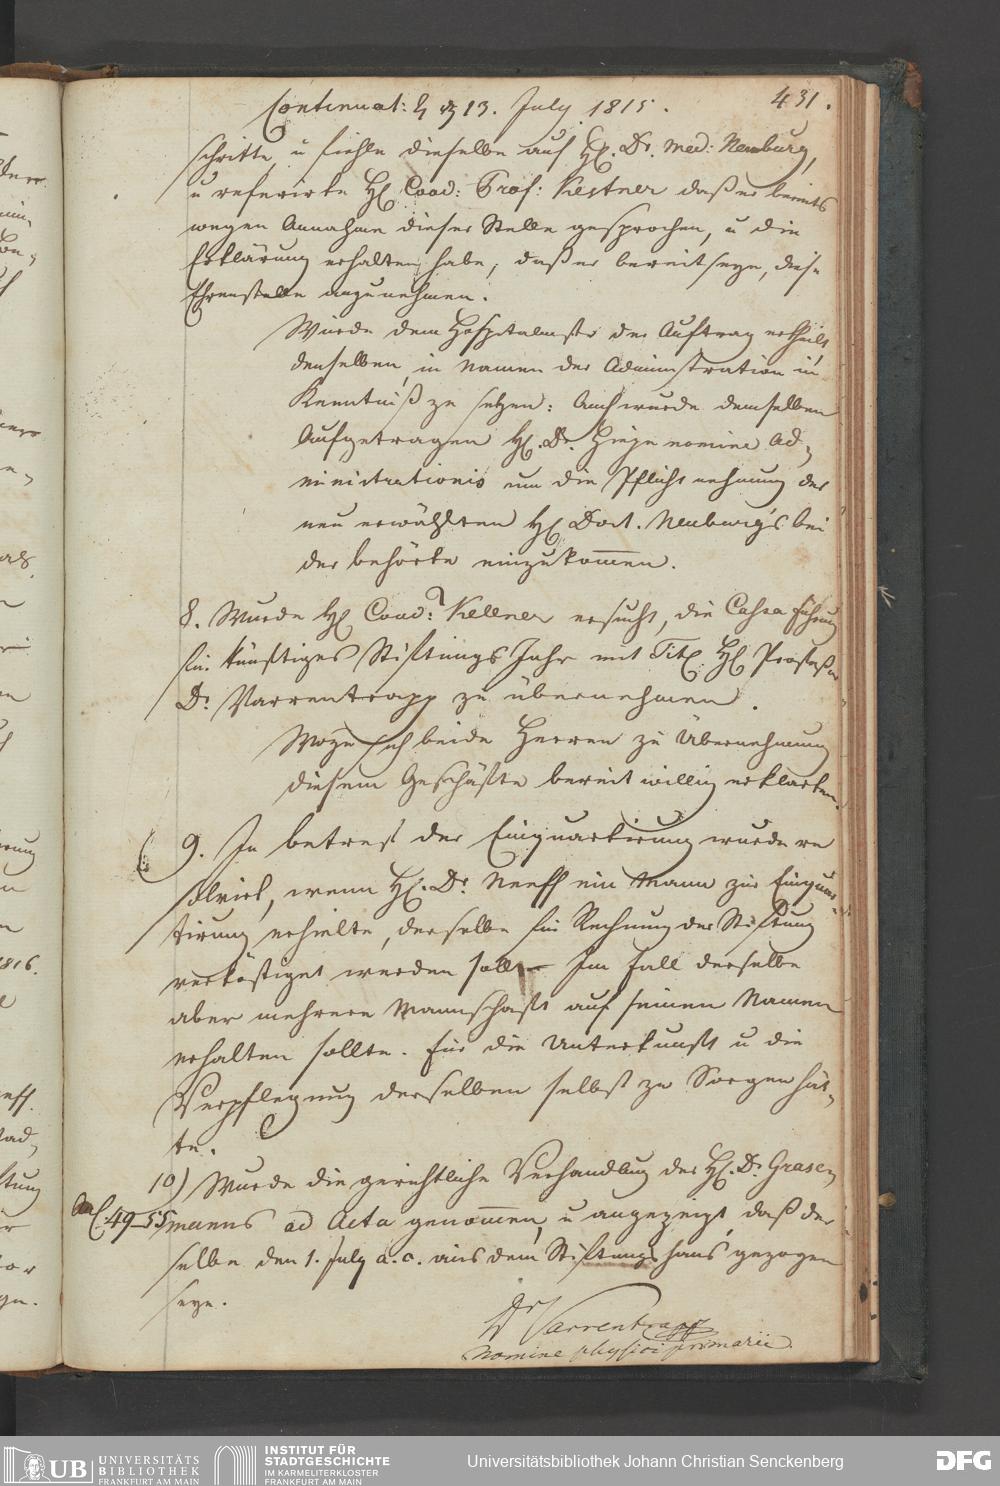 Continuat: ♄ 13. July 1815.
431.
schritte, u fiehle dieselbe auf H. Dr. Med: Neuburg,
u referirte H Coad: Prof: Kestner daß er bereits
wegen Annahme dieser Stelle gesprochen, u die
Erklärung erhalten habe, daß er bereit seye, diese
Ehrenstelle anzunehmen.
Wurde dem Hospitalmstr der Auftrag ertheilt,
denselben, in Namen der Administration in
Kenntniß zu setzen: Auch wurde demselben
Aufgetragen H. Dr. nomine Ad,
ministrationis um die Pflicht nehmung des
neu erwählten H Doct. Neuburg's bei
der behörte einzukommen.
8. Wurde H Coad: Kellner ersucht, die Cassa führung
für künftiges Stiftungs Jahr mit Tit H Professor
Dr Varrentrapp zu übernehmen.
Wozu sich beide Herren zu Übernehmung
diesem Geschäfte bereit willig erklärten.
9. In betref der Einquartirung wurde re
solvirt, wenn H. Dr. Neeff ein Mann zur Einquar-
tirung erhielte, derselbe für Rechnung der Stiftung
verköstiget werden soll – Im fall derselbe
aber mehrere Mannschaft auf seinen Namen
erhalten sollte. für die Unterkunft u die
Verpflegung derselben selbst zu Sorgen hät,
te.
10) Wurde die gerichtliche Verhandlug des H. Dr Grasem
49-55
manns ad Acta genom̄en, u angezeigt, daß der
selbe den 1. July a. c. aus dem Stiftungshaus gezogen
seye.
Dr Varrentrapp
nomine physici primarii
UB
UNIVERSITÄTS
BIBLIOTHEK
FRANKFURT AM MAIN
INSTITUT FÜR
STADTGESCHICHTE
IM KARMELITERKLOSTER
FRANKFURT AM MAIN
Universitätsbibliothek Johann Christian Senckenberg
DFG